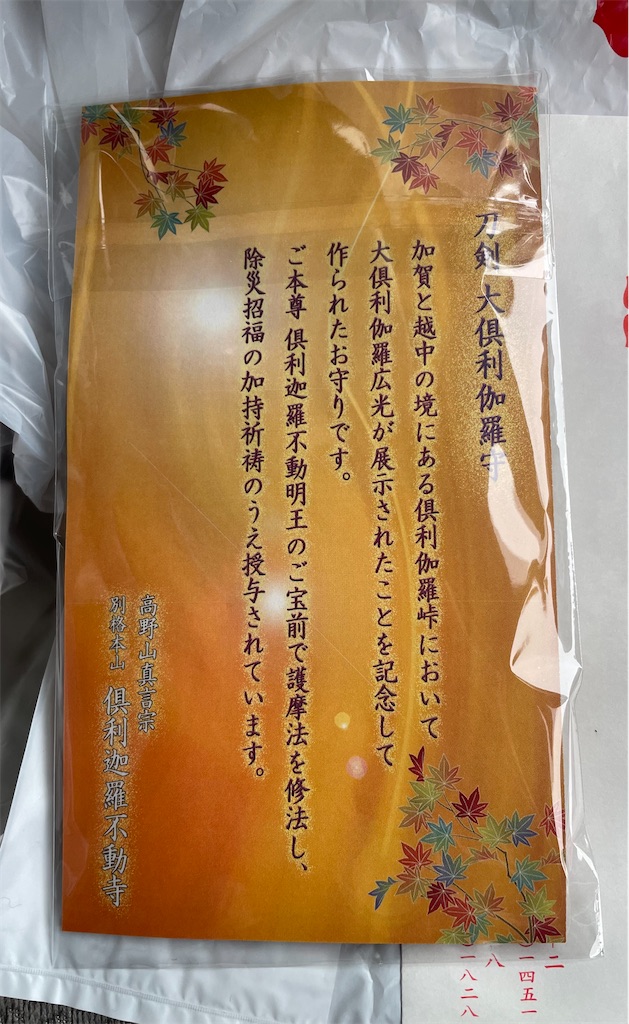 刀剣 大倶利伽羅守
加賀と越中の境にある倶利伽羅峠において
大倶利伽羅広光が展示されたことを記念して
作られたお守りです。
ご本尊 倶利迦羅不動明王のご宝前で護摩法を修法し、
除災招福の加持祈祷のうえ授与されています。
高野山真言宗
別格本山 倶利迦羅不動寺
一二
)一四五一
八
)一八二八